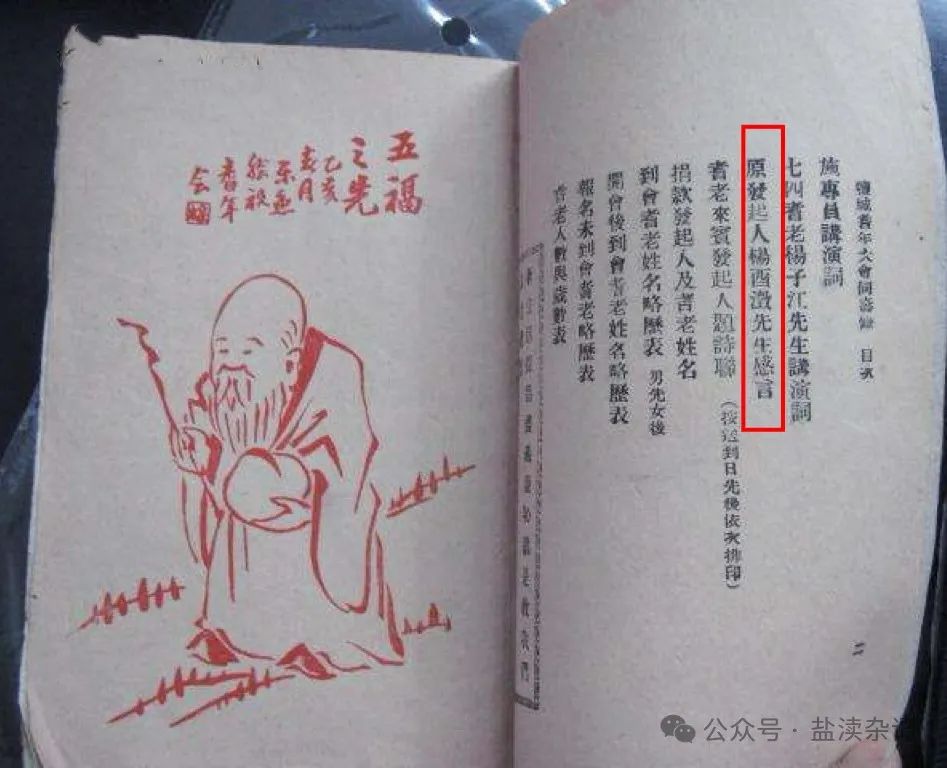 鹽城耆年大會同壽錄 目次
施專員講演詞
七四耆老楊子江先生講演詞
原發起人楊酉澂先生感言
耆老來賓發起人題詩聯（按送到日先後依次排印）
捐款發起人及耆老姓名
到會者老姓名略歷表 男先女後
開會後到會耆老姓名略歷表
報名未到會耆老略歷表
耆老人數與歲數表
二
五福
之先
乙亥
春月
耆年
会
公众号 · 盐渎杂